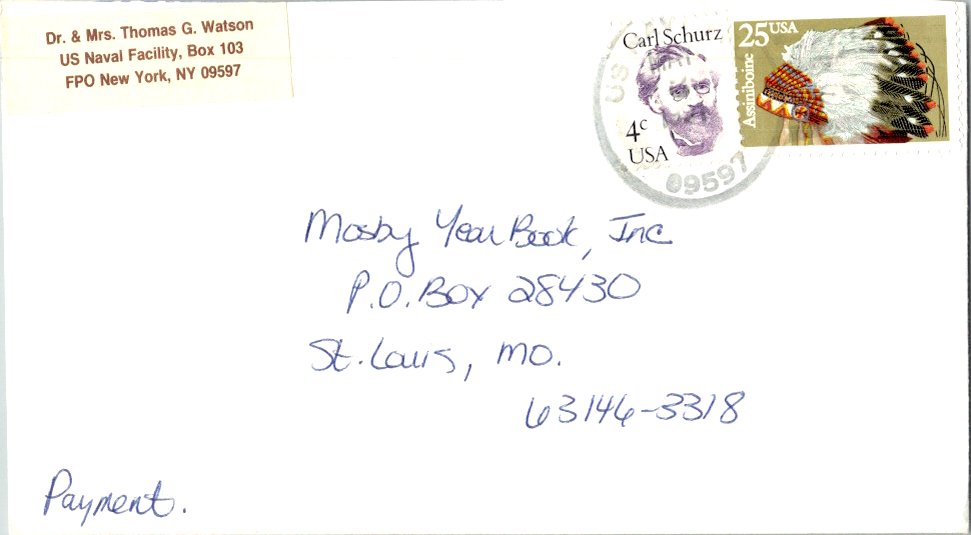 Dr. & Mrs. Thomas G. Watson
US Naval Facility, Box 103
FPO New York, NY 09597
Carl Schurz
4c
USA
25 USA
Assiniboine
US NAV
09597
Mosby Year Book, Inc
P.O. Box 28430
St. Louis, MO.
63146-3318
Payment.